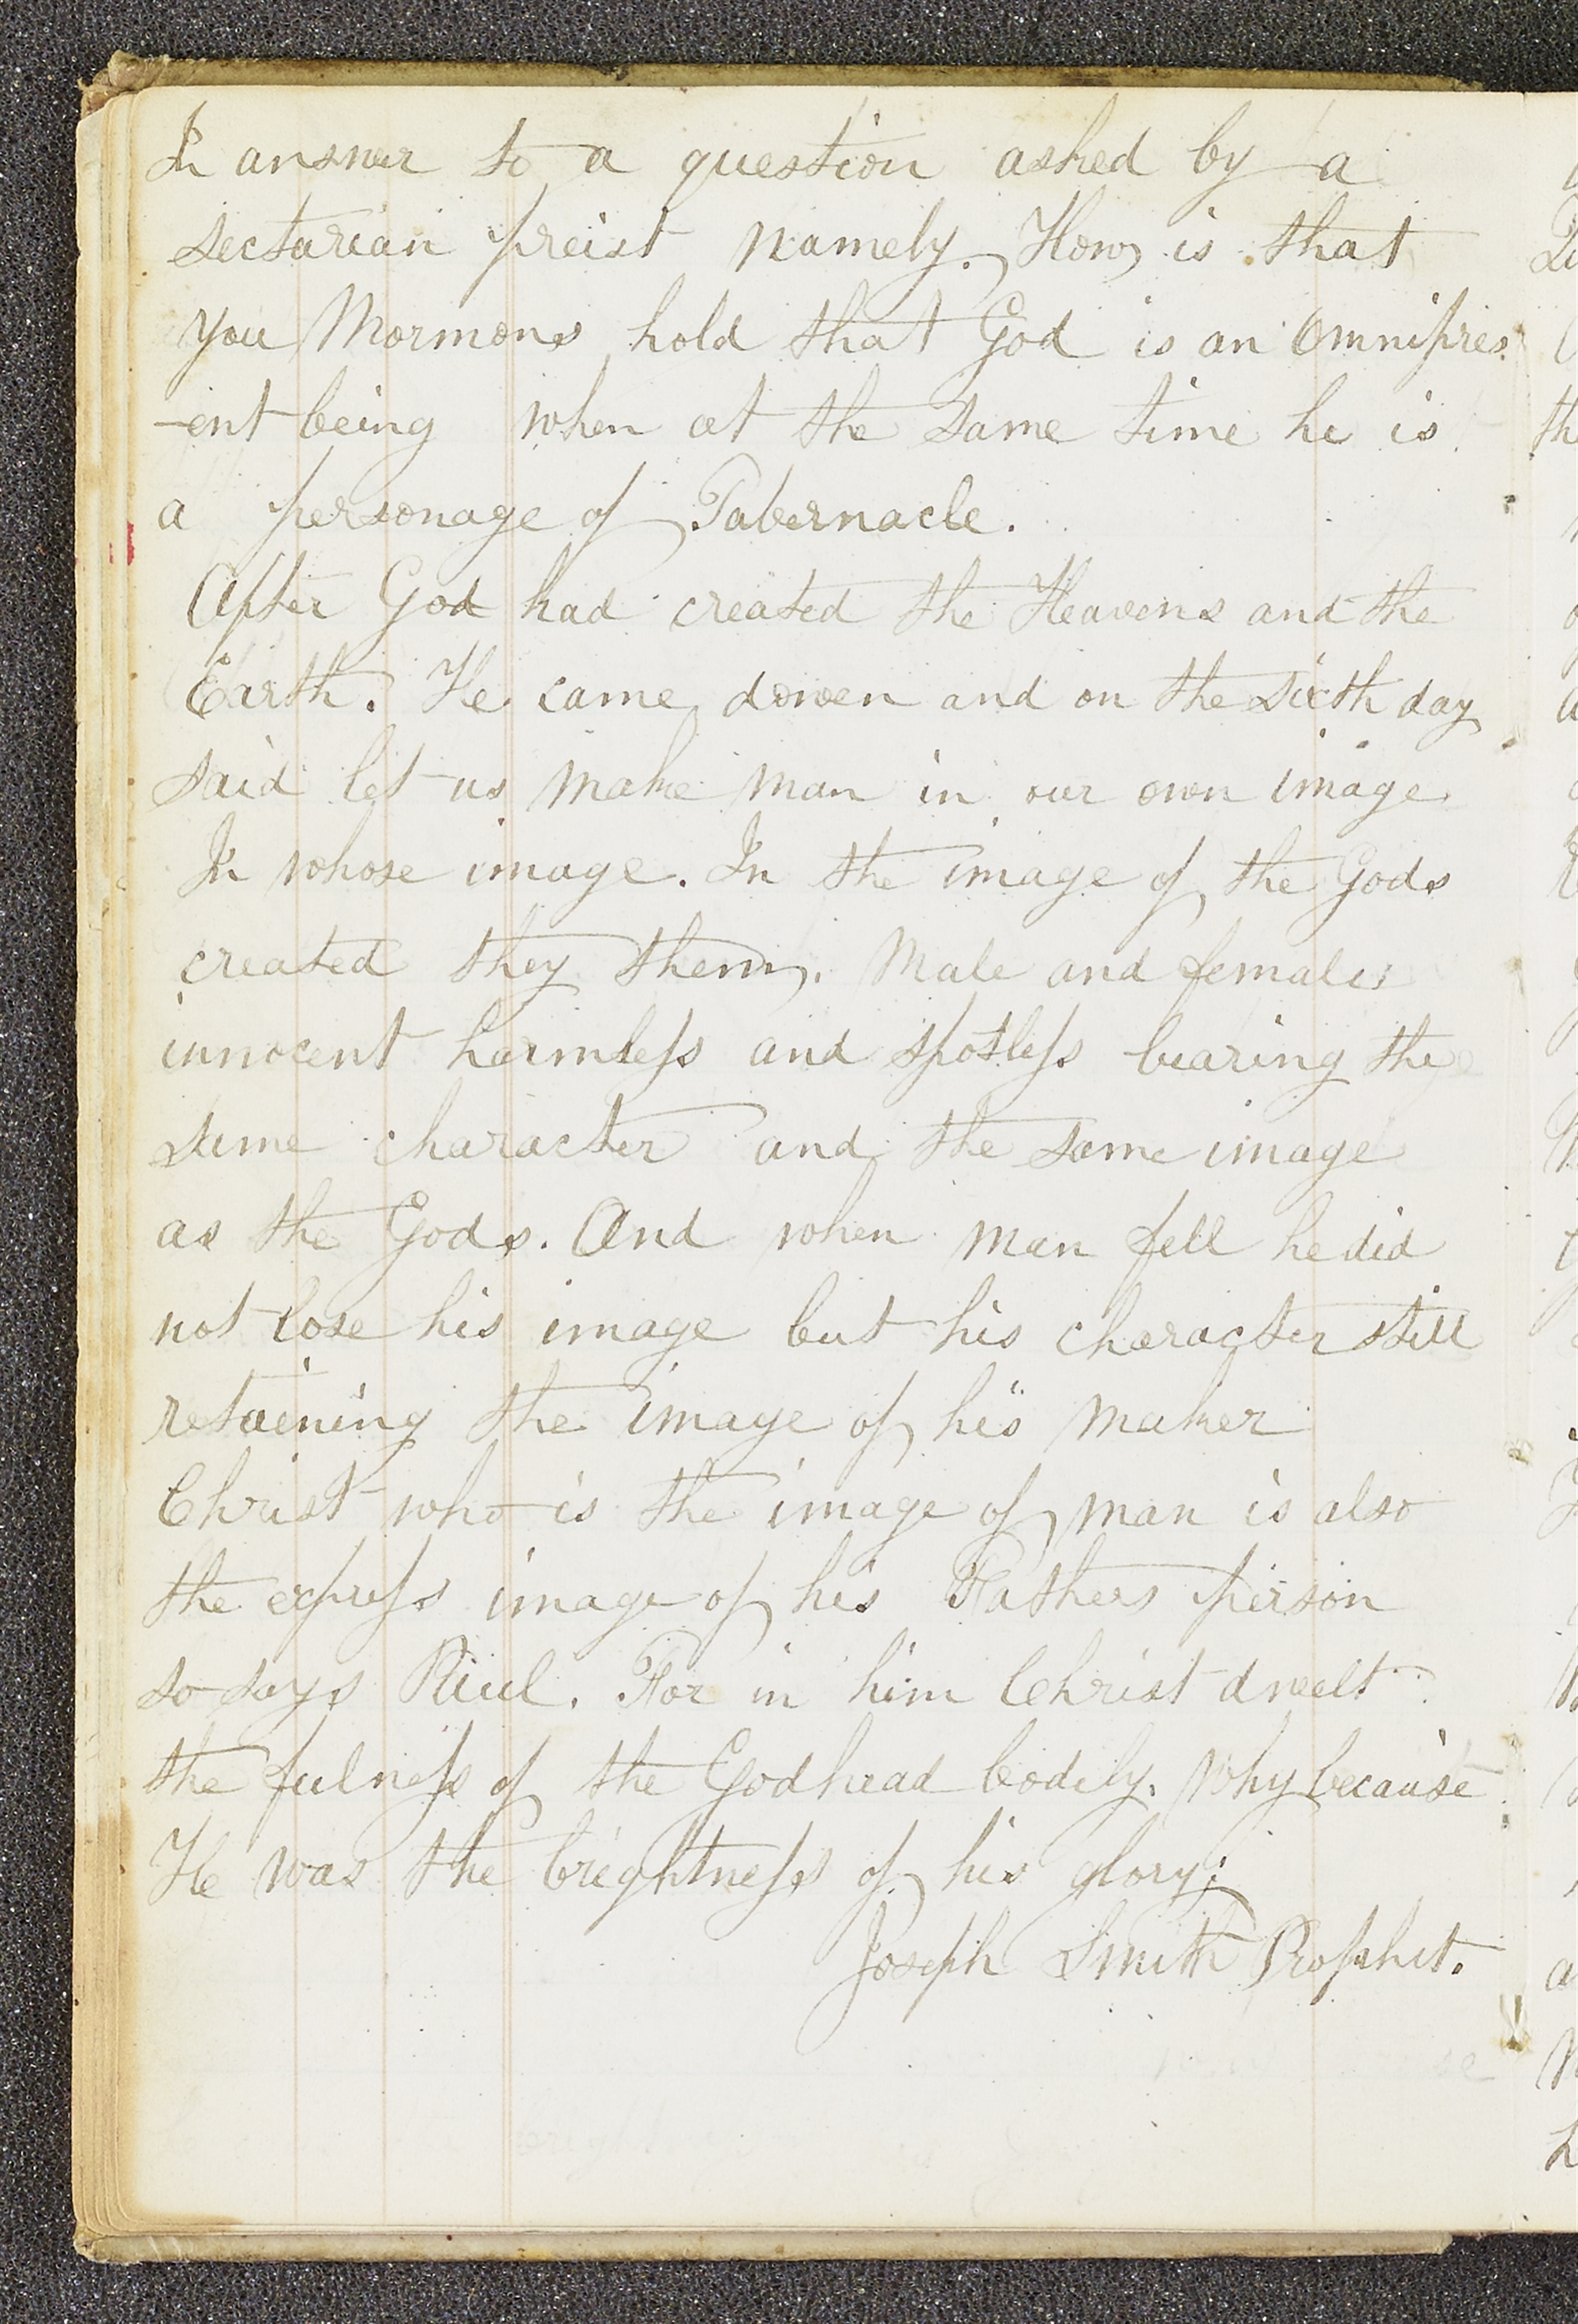 In answer to a question asked by a
sectarian preist namely. How is that
you Mormons hold that God is an Omnipres
-ent being when at the same time he is
a personage of Tabernacle.
After God had created the Heavens and the
Earth. He came down and on the sixth day
said let us make man in our own image
In whose image. In the image of the Gods
created they them. Male and female
innocent harmless and spotless bearing the
same character and the same image
as the Gods. And when man fell he did
not lose his image but his character still
retaining the image of his maker
Christ who is the image of man is also
the express image of his Fathers person
so says Paul. For in him Christ dwelt
the fulness of the Godhead bodily. Why because
He was the brightness of his glory;
Joseph Smith Prophet.